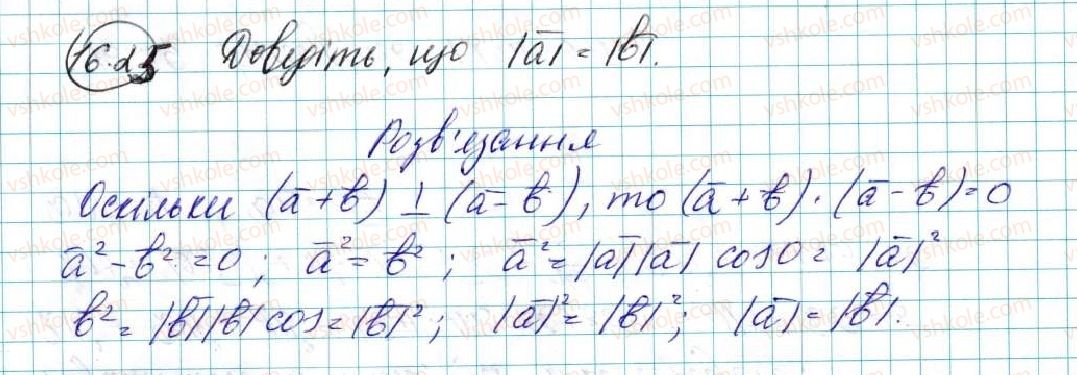 16.25 Доведіть, що |a̅| = |b̅|.
Розв'язання
Оскільки (a̅ + b̅) ⊥ (a̅ - b̅), то (a̅ + b̅) · (a̅ - b̅) = 0
a̅² - b̅² = 0; a̅² = b̅²; a̅² = |a̅||a̅| cos 0 = |a̅|²
b̅² = |b̅||b̅| cos = |b̅|²; |a̅|² = |b̅|²; |a̅| = |b̅|.